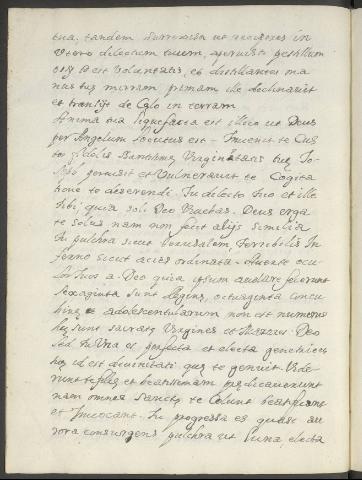 tua, tandem surrexisti ut reciperes in
Utero dilectum tuum, aperuisti pestillum
oris id est voluntatis, et distillantes ma
nus tuę mirram primam ille declinavit
et transijt de Cęlo in terram
Anima tua liquefacta est illico ut Deus
per Angelum locutus est - Invenit te Cus
tos fidelis Sanctissimę Virginitatis tuę Jo-
seph percusit et Vulneravit te Cogita
tione te deserendi. Tu dilecto tuo et ille
tibi, quia soli Deo Vacabas. Deus erga
te solus nam non fecit alijs similia
Tu pulchra sicut Jerusalem, terribilis In
ferno sicut acies ordinata. Averte ocu
los tuos a Deo quia ipsum avolare fecerunt
sexaginta sunt Reginę, octuaginta concu
binę et adolescentularum non est numerus
hę sunt sacratę Virgines et Deo
sed tu Una es perfecta et electa genetricis
tuę id est divinitati quę te genuit. Vide
runt te filię et beatissimam prędicaverunt
nam omnes sancti te Colunt beatificant
et Invocant. Tu progressa es quasi au
rora consurgens pulchra ut luna, electa